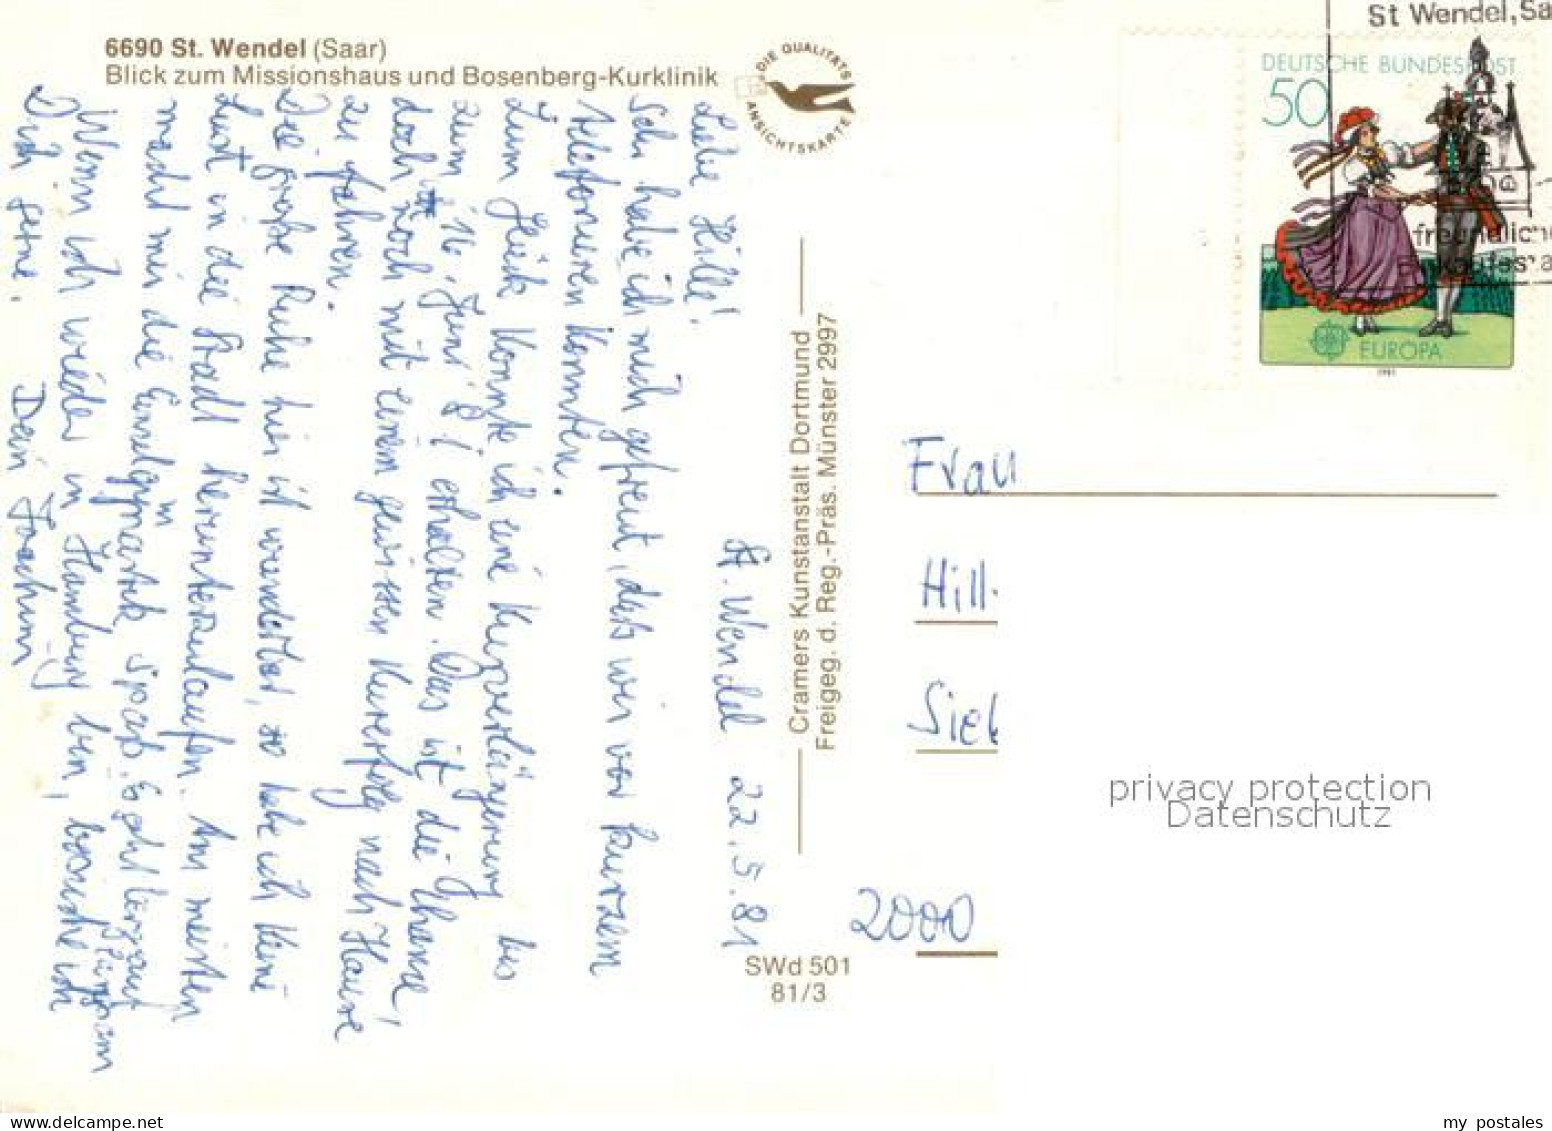 6690 St. Wendel (Saar)
Blick zum Missionshaus und Bosenberg-Kurklinik
DIE QUALITÄTS
ANSICHTSKARTE
St Wendel, Sa
DEUTSCHE BUNDESPOST
50
freundliche
EUROPA
1981
St. Wendel 22.5.81
Liebe Hille!
Sehr habe ich mich gefreut, daß wir vor kurzem
telefonieren konnten.
Zum Glück konnte ich eine Kurverlängerung bis
zum 16. Juni 81 erhalten. Das ist die Chance,
doch noch mit einem gewissen Kurerfolg nach Hause
zu fahren.
Die große Ruhe hier ist wunderbar, so habe ich keine
Lust in die Stadt herunterzulaufen. Am meisten
macht mir die Einzelgymnastik Spaß. Es geht bergauf
langsam
Wenn ich wieder in Hamburg bin, besuche ich
Dich gerne. Dein Joachim
Cramers Kunstanstalt Dortmund
Freigeg. d. Reg.-Präs. Münster 2997
Frau
Hill
Sieb
2000
SWd 501
81/3
privacy protection
Datenschutz
my postales